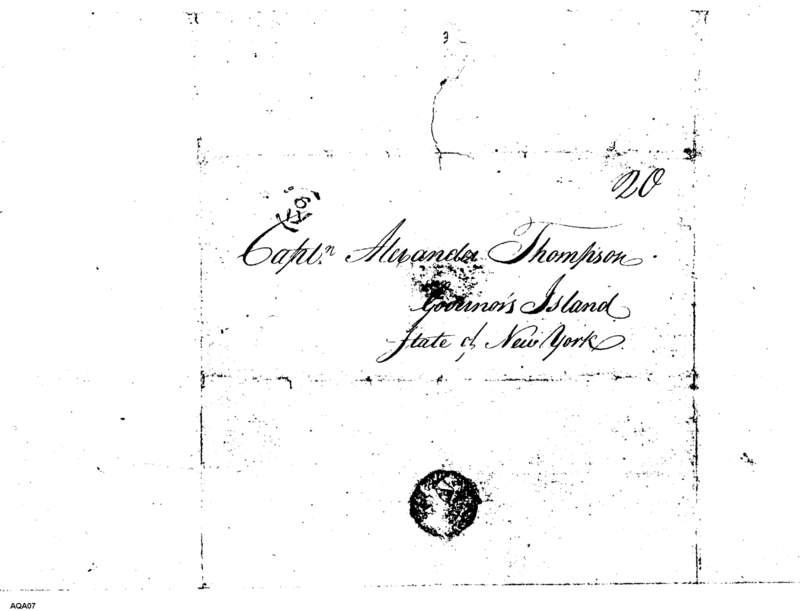 20
Capt.n Alexander Thompson.
Governor's Island
State of New York.
AQA07